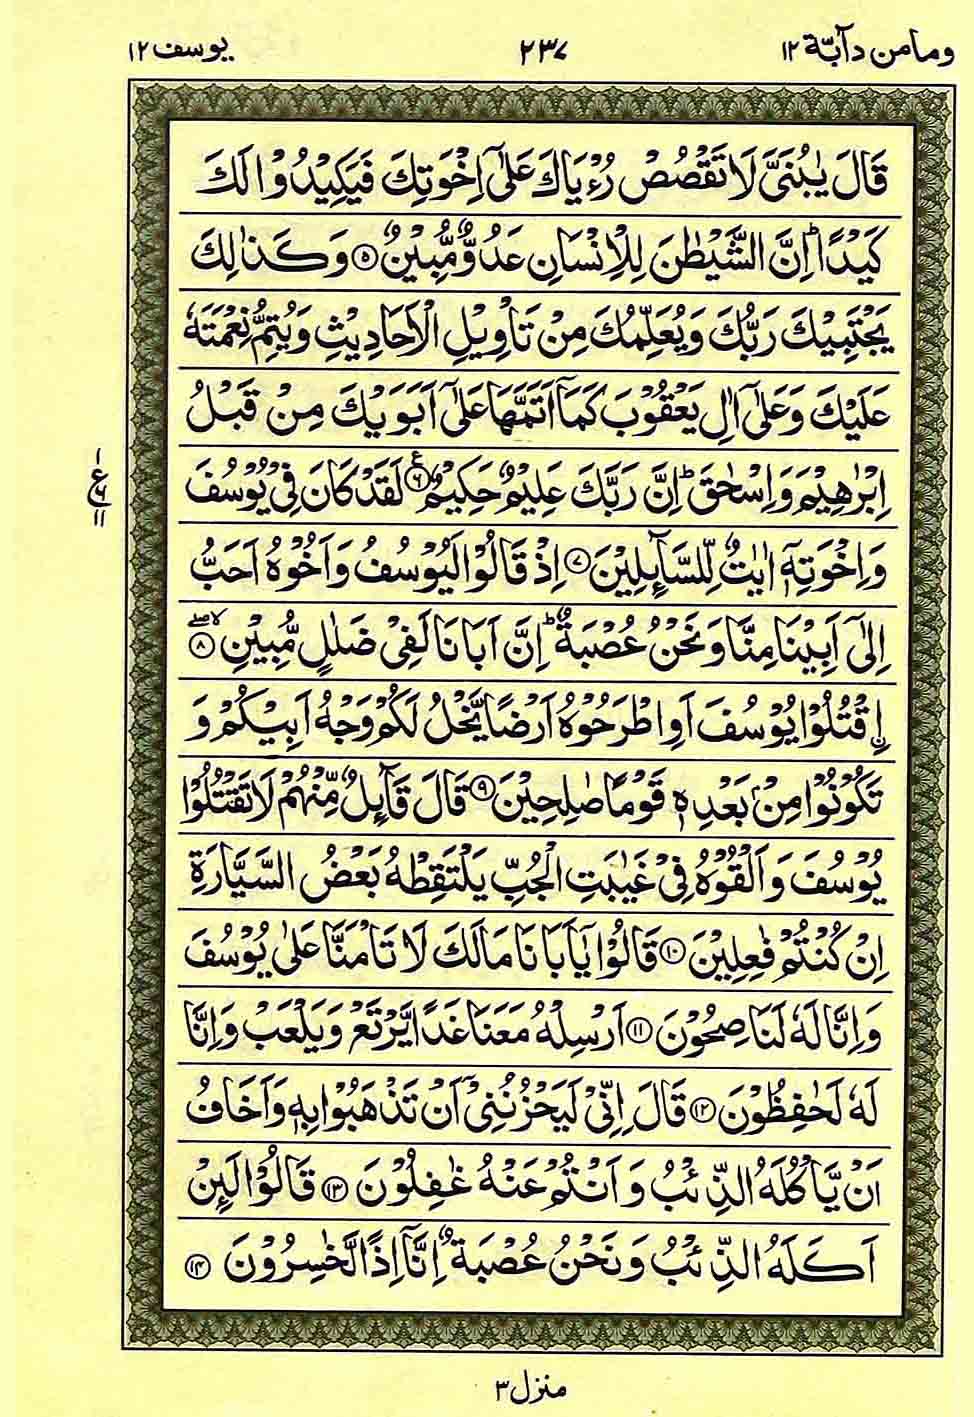 وما من دآبّة ۱۲
۲۳۷
یوسف ۱۲
قَالَ یٰبُنَیَّ لَا تَقْصُصْ رُءْیَاكَ عَلٰۤی اِخْوَتِكَ فَیَكِیْدُوْا لَكَ
كَیْدًا ؕ اِنَّ الشَّیْطٰنَ لِلْاِنْسَانِ عَدُوٌّ مُّبِیْنٌ ۵ وَ كَذٰلِكَ
یَجْتَبِیْكَ رَبُّكَ وَ یُعَلِّمُكَ مِنْ تَاْوِیْلِ الْاَحَادِیْثِ وَ یُتِمُّ نِعْمَتَهٗ
عَلَیْكَ وَ عَلٰۤی اٰلِ یَعْقُوْبَ كَمَاۤ اَتَمَّهَا عَلٰۤی اَبَوَیْكَ مِنْ قَبْلُ
اِبْرٰهِیْمَ وَ اِسْحٰقَ ؕ اِنَّ رَبَّكَ عَلِیْمٌ حَكِیْمٌ ۶ ع لَقَدْ كَانَ فِیْ یُوْسُفَ
۱
ع ۶
۱۱
وَ اِخْوَتِهٖۤ اٰیٰتٌ لِّلسَّآىِٕلِیْنَ ۷ اِذْ قَالُوْا لَیُوْسُفُ وَ اَخُوْهُ اَحَبُّ
اِلٰۤی اَبِیْنَا مِنَّا وَ نَحْنُ عُصْبَةٌ ؕ اِنَّ اَبَانَا لَفِیْ ضَلٰلٍ مُّبِیْنِ ۸ صلے لا
اِ۟قْتُلُوْا یُوْسُفَ اَوِ اطْرَحُوْهُ اَرْضًا یَّخْلُ لَكُمْ وَجْهُ اَبِیْكُمْ وَ
تَكُوْنُوْا مِنْۢ بَعْدِهٖ قَوْمًا صٰلِحِیْنَ ۹ قَالَ قَآىِٕلٌ مِّنْهُمْ لَا تَقْتُلُوْا
یُوْسُفَ وَ اَلْقُوْهُ فِیْ غَیٰبَتِ الْجُبِّ یَلْتَقِطْهُ بَعْضُ السَّیَّارَةِ
اِنْ كُنْتُمْ فٰعِلِیْنَ ۱۰ قَالُوْا یٰۤاَبَانَا مَا لَكَ لَا تَاْمَنَّا عَلٰی یُوْسُفَ
وَ اِنَّا لَهٗ لَنٰصِحُوْنَ ۱۱ اَرْسِلْهُ مَعَنَا غَدًا یَّرْتَعْ وَ یَلْعَبْ وَ اِنَّا
لَهٗ لَحٰفِظُوْنَ ۱۲ قَالَ اِنِّیْ لَیَحْزُنُنِیْۤ اَنْ تَذْهَبُوْا بِهٖ وَ اَخَافُ
اَنْ یَّاْكُلَهُ الذِّئْبُ وَ اَنْتُمْ عَنْهُ غٰفِلُوْنَ ۱۳ قَالُوْا لَىِٕنْ
اَكَلَهُ الذِّئْبُ وَ نَحْنُ عُصْبَةٌ اِنَّاۤ اِذًا لَّخٰسِرُوْنَ ۱۴
منزل ۳